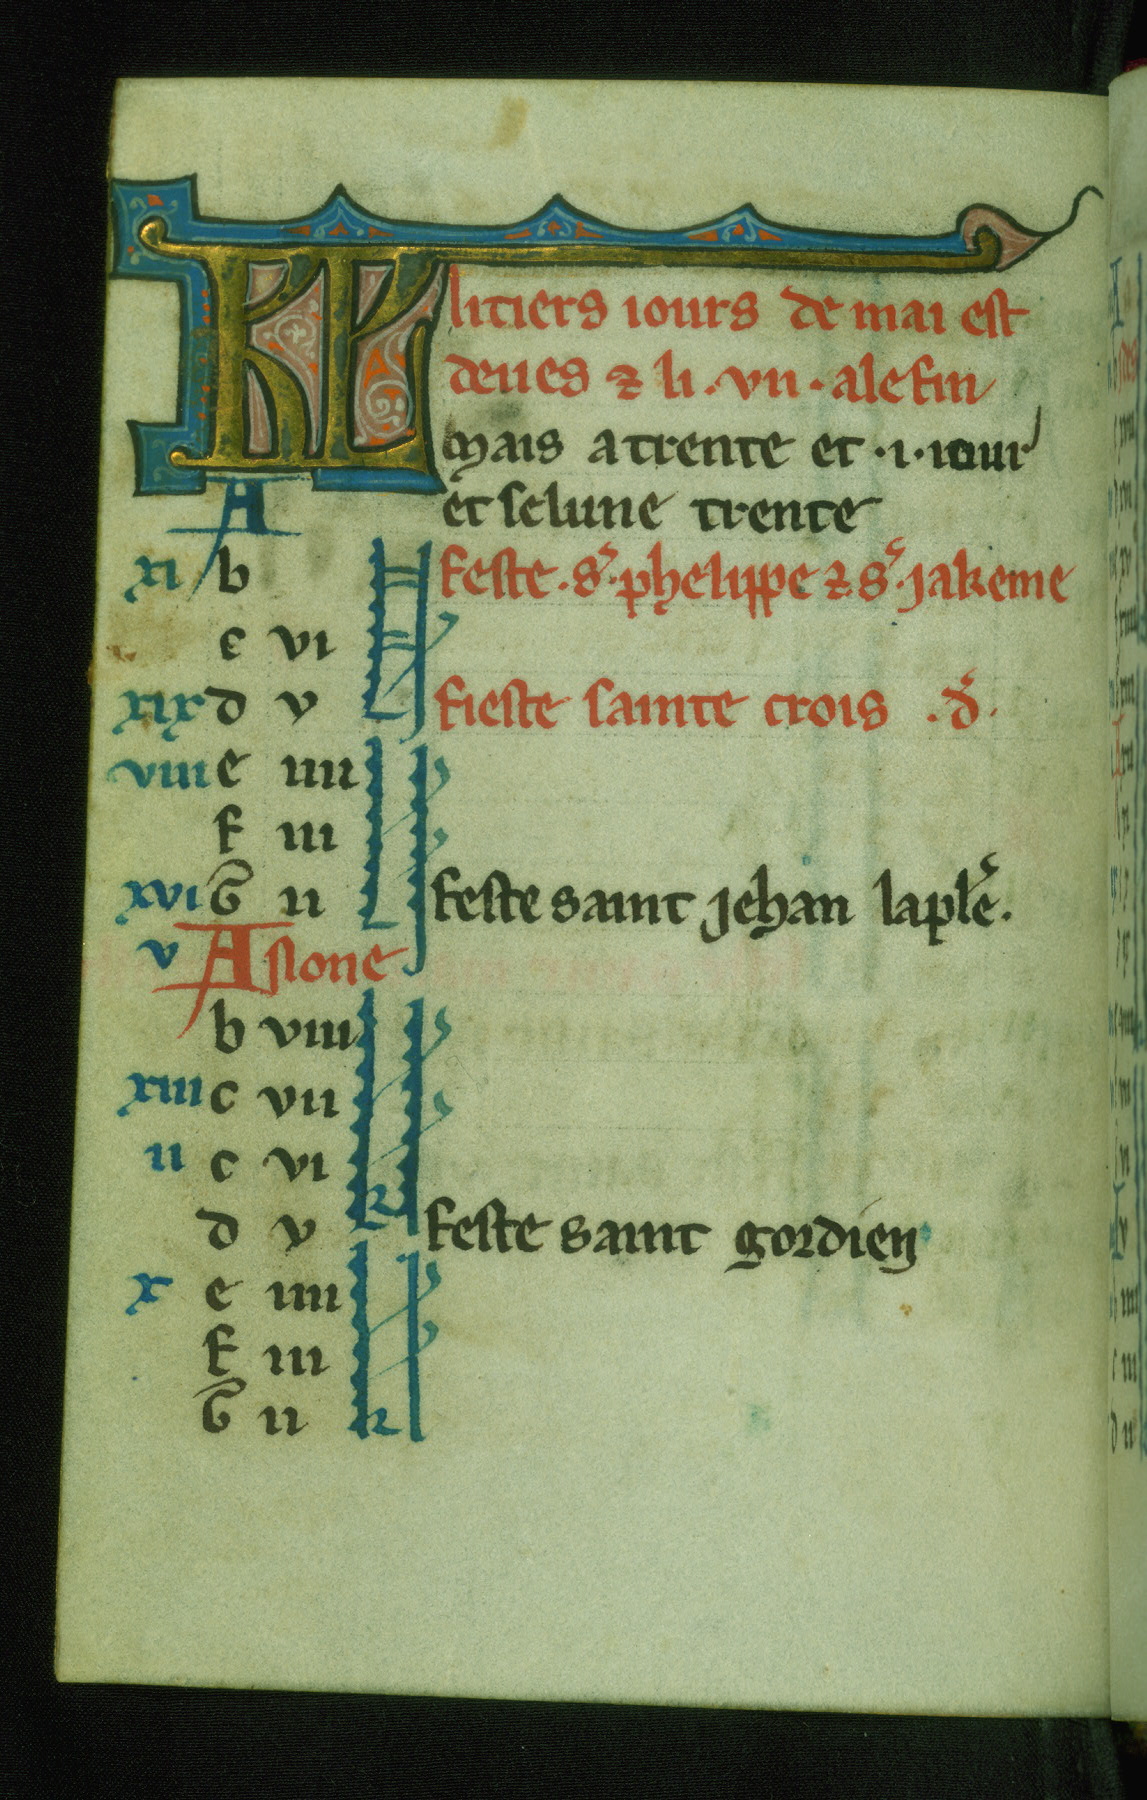 KL
li tiers iours de mai est
deues ⁊ li · vii · ale fin
Mais a trente et · i · iour
et se lune trente
A
xi b feste · s' · phelippe ⁊ s' · jakeme
c vi
xix d v fieste sainte crois · d' ·
viii e iiii
f iii
xvi G ii feste saint jehan laple' ·
v A none
b viii
xiii c vii
ii c vi
d v feste saint gordien
x e iiii
f iii
G ii